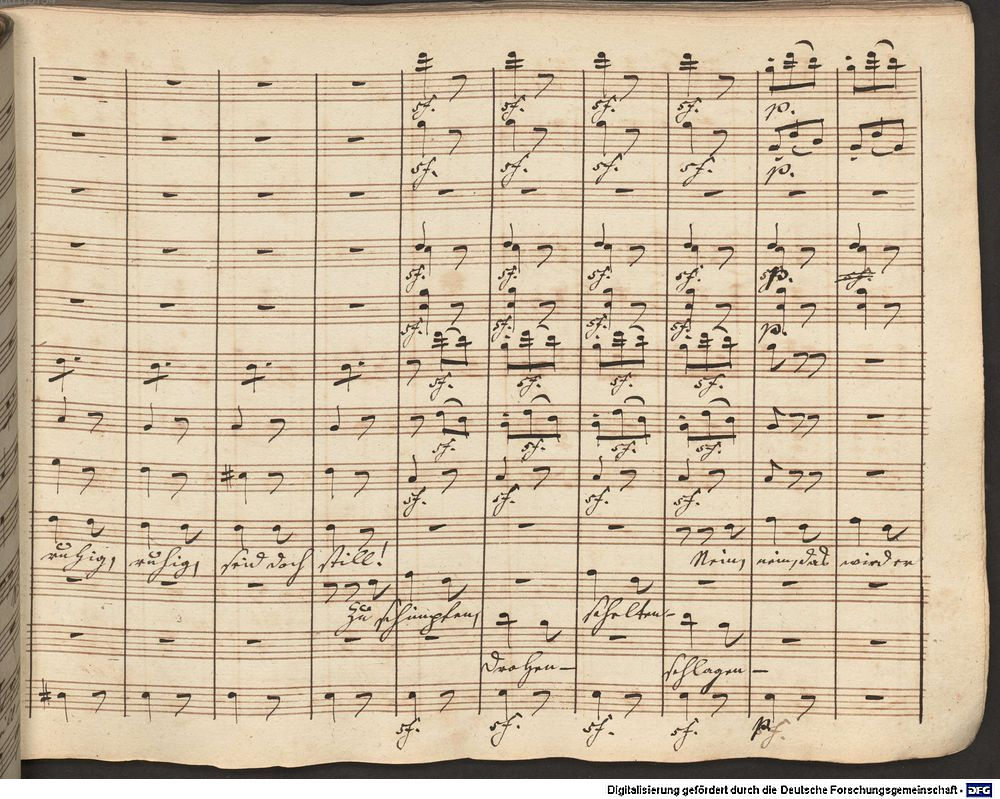 sf. sf. sf. sf. p.
sf. sf. sf. sf. p.
sf. sf. sf. sf. p. sf.
sf. sf. sf. sf. p.
sf. sf. sf. sf.
sf. sf. sf. sf.
sf. sf. sf. sf.
ruhig, ruhig, seid doch still! Nein, nein, das wird er
Zu schimpfen, schelten
drohen schlagen
sf. sf. sf. sf. p
Digitalisierung gefördert durch die Deutsche Forschungsgemeinschaft - DFG